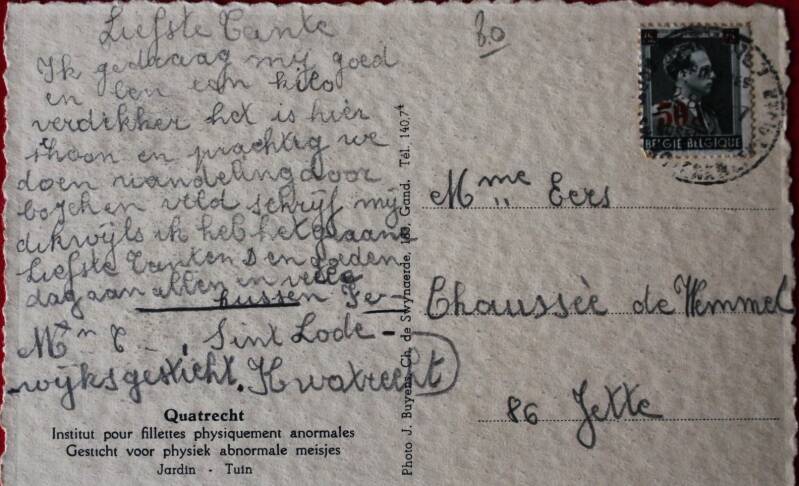 Liefste Tante
Ik gedraag mij goed
en ben een kilo
verdikker het is hier
schoon en prachtig we
doen wandeling door
bosch en veld schrijf mij
dikwijls ik heb het gaarne
Liefste Tante en goeden
dag aan allen en vele
kussen
Sint Lode-
wijksgesticht. Kwatrecht
Quatrecht
Institut pour fillettes physiquement anormales
Gesticht voor physiek abnormale meisjes
Jardin - Tuin
Photo J. Buyens, Ch. de Swynaerde, Gand. Tél. 140,74
80
50
BELGIE BELGIQUE
Mme Eers
Chaussée de Wemmel
86 Jette